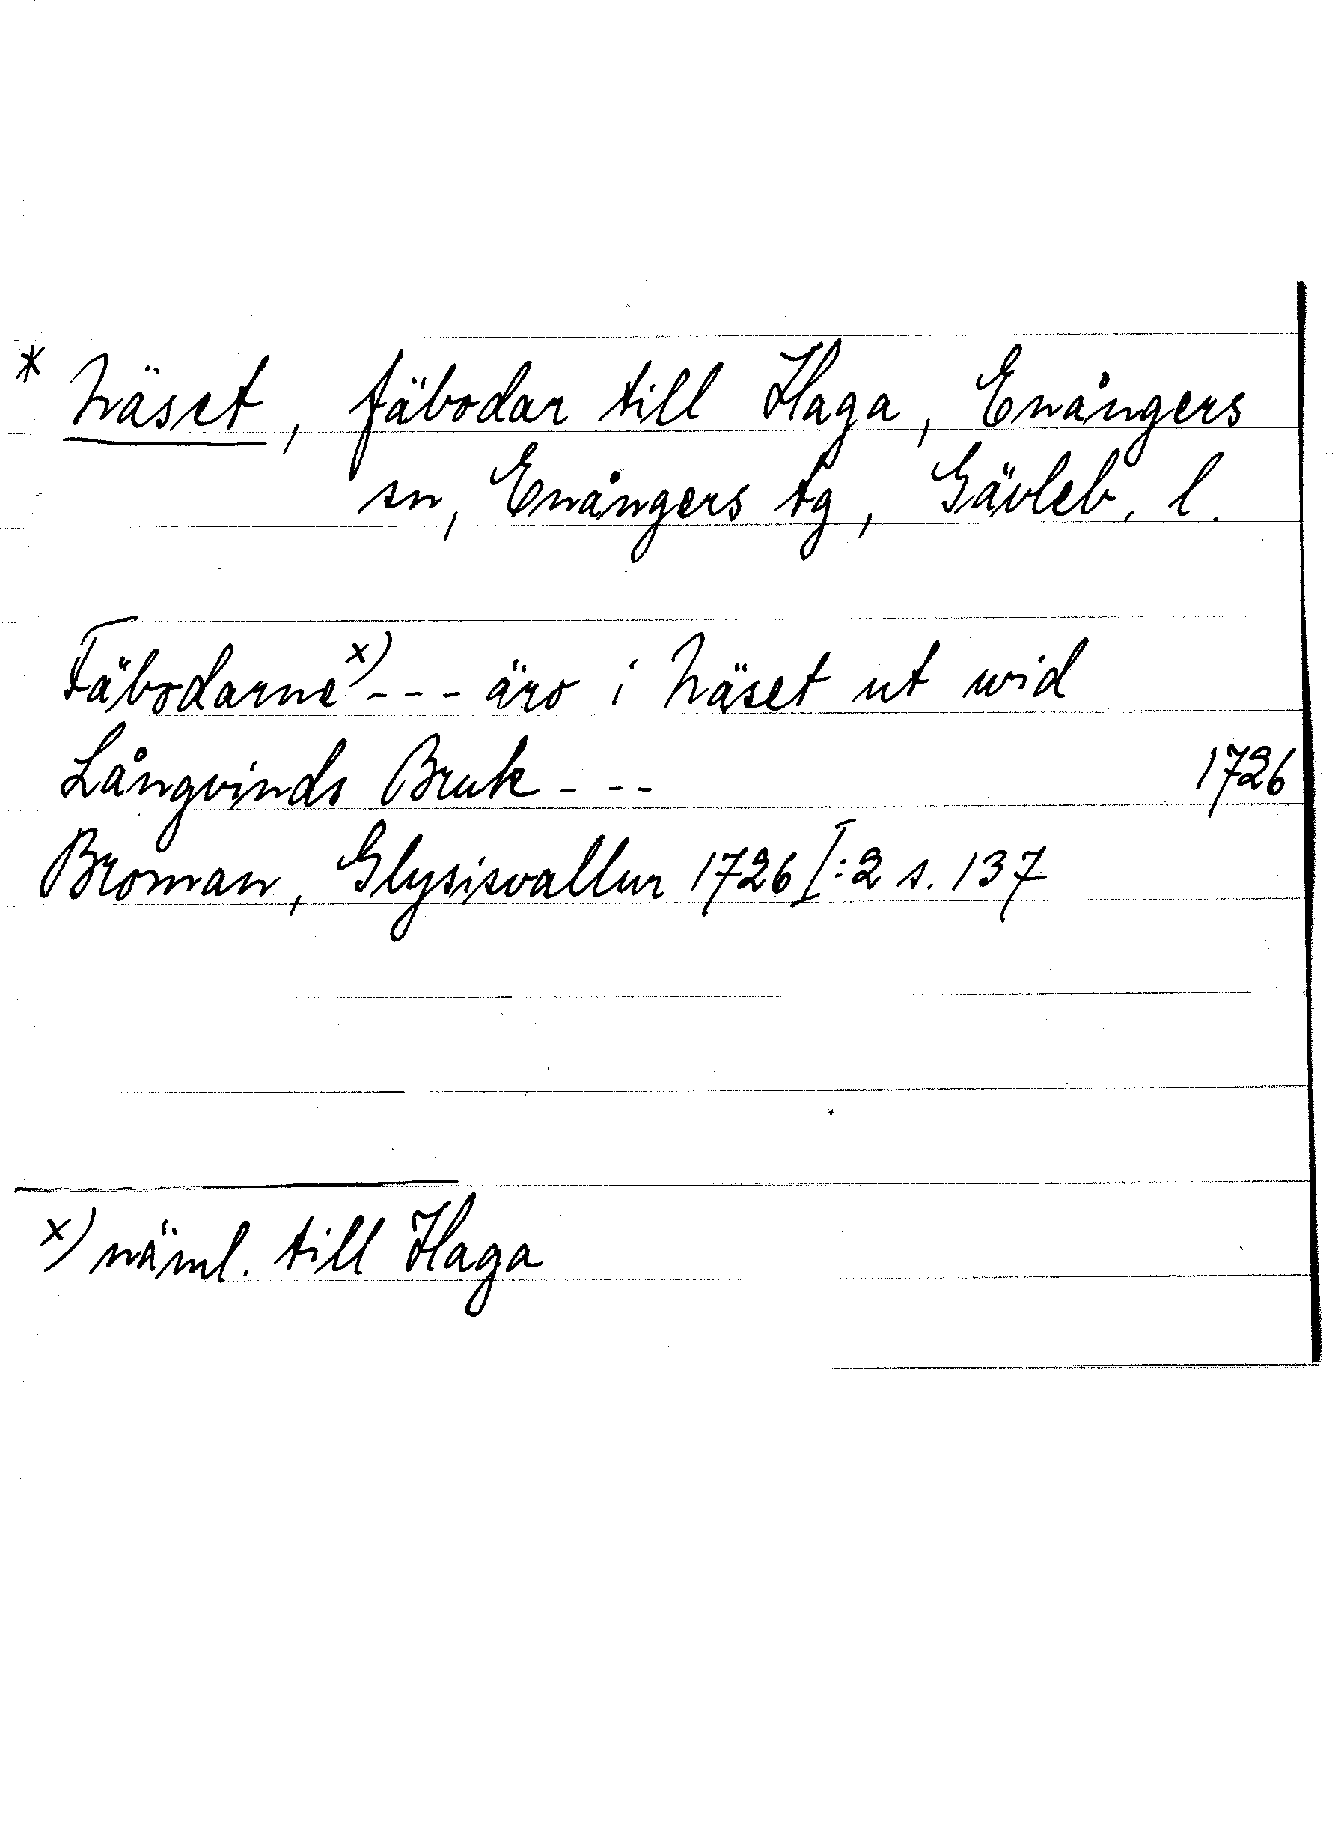 * Näset, fäbodar till Haga, Enångers
sn, Enångers tg, Gävleb. l.
Fäbodarne x) --- äro i Näset ut wid
Långvinds Bruk --- 1726
Broman, Glysisvallur 1726 I:2 s. 137
x) näml. till Haga